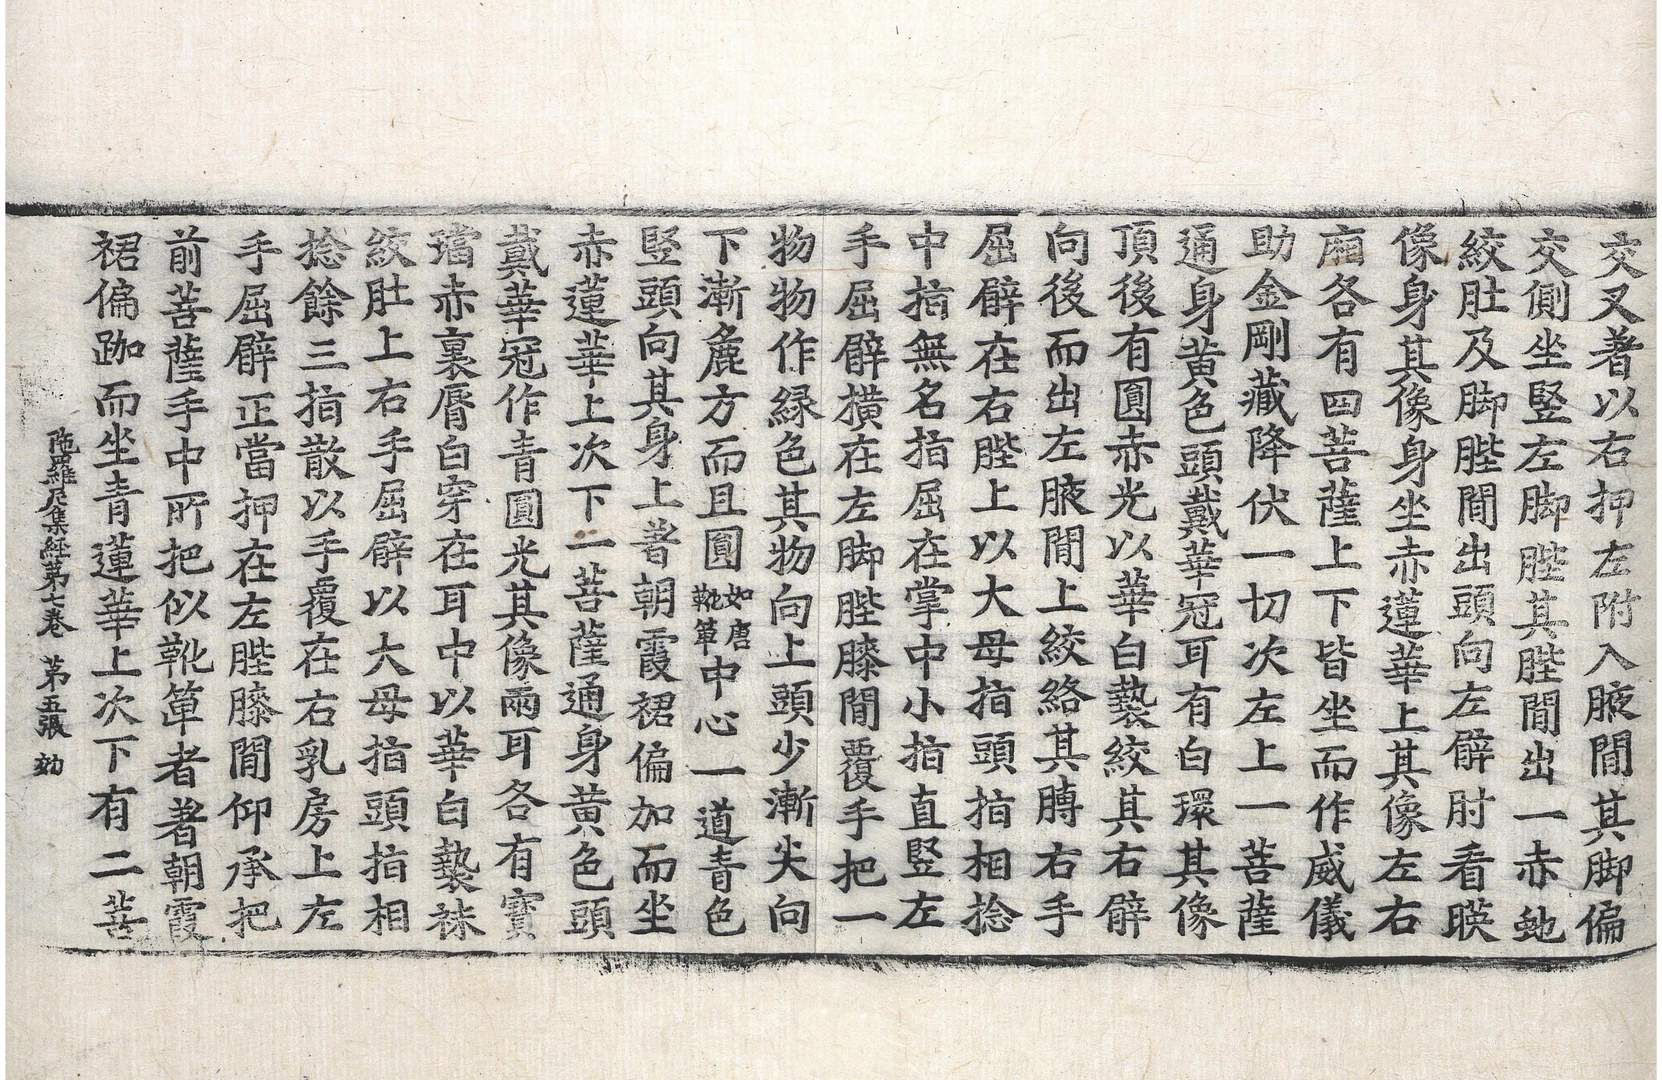 交叉著以右押左附入腋間其脚偏
交側坐竪左脚䏶其䏶間出一赤虵
絞肚及脚䏶間出頭向左臂肘看瞙
像身其像身坐赤蓮華上其像左右
廂各有四菩薩上下皆坐而作威儀
助金剛藏降伏一切次左上一菩薩
通身黃色頭戴華冠耳有白環其像
頂後有圓赤光以華白㲲絞其右臂
向後而出左腋間上絞絡其膊右手
屈臂在右䏶上以大母指頭指相捻
中指無名指屈在掌中小指直竪左
手屈臂橫在左脚䏶膝間覆手把一
物物作緑色其物向上頭少漸尖向
下漸麁方而且圓如唐靴箄中心一道青色
竪頭向其身上著朝霞裙偏加而坐
赤蓮華上次下一菩薩通身黃色頭
戴華冠作青圓光其像兩耳各有寶
璫赤裏脣白穿在耳中以華白㲲袜
絞肚上右手屈臂以大母指頭指相
捻餘三指散以手覆在右乳房上左
手屈臂正當押在左䏶膝間仰承把
前菩薩手中所把似靴箄者著朝霞
裙偏跏而坐青蓮華上次下有二菩
陁羅尼集經第七卷　第五張　効